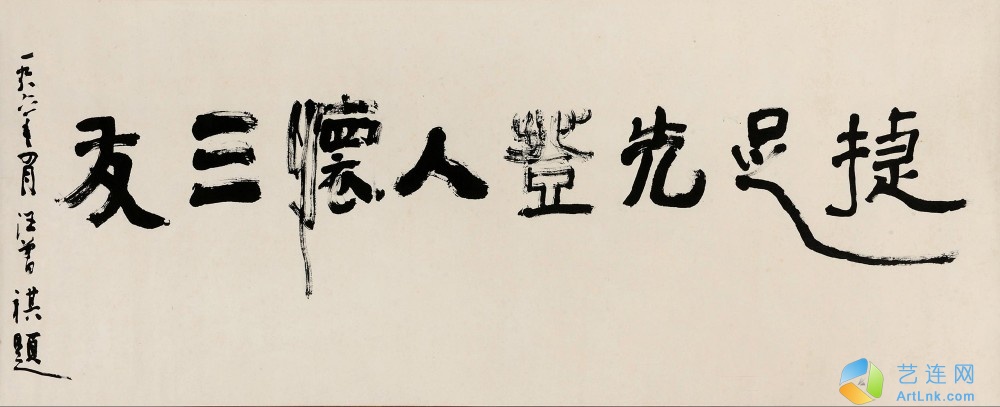 捷足先登人懷三友
一九八六年四月汪曾祺題
艺连网
ArtLnk.com